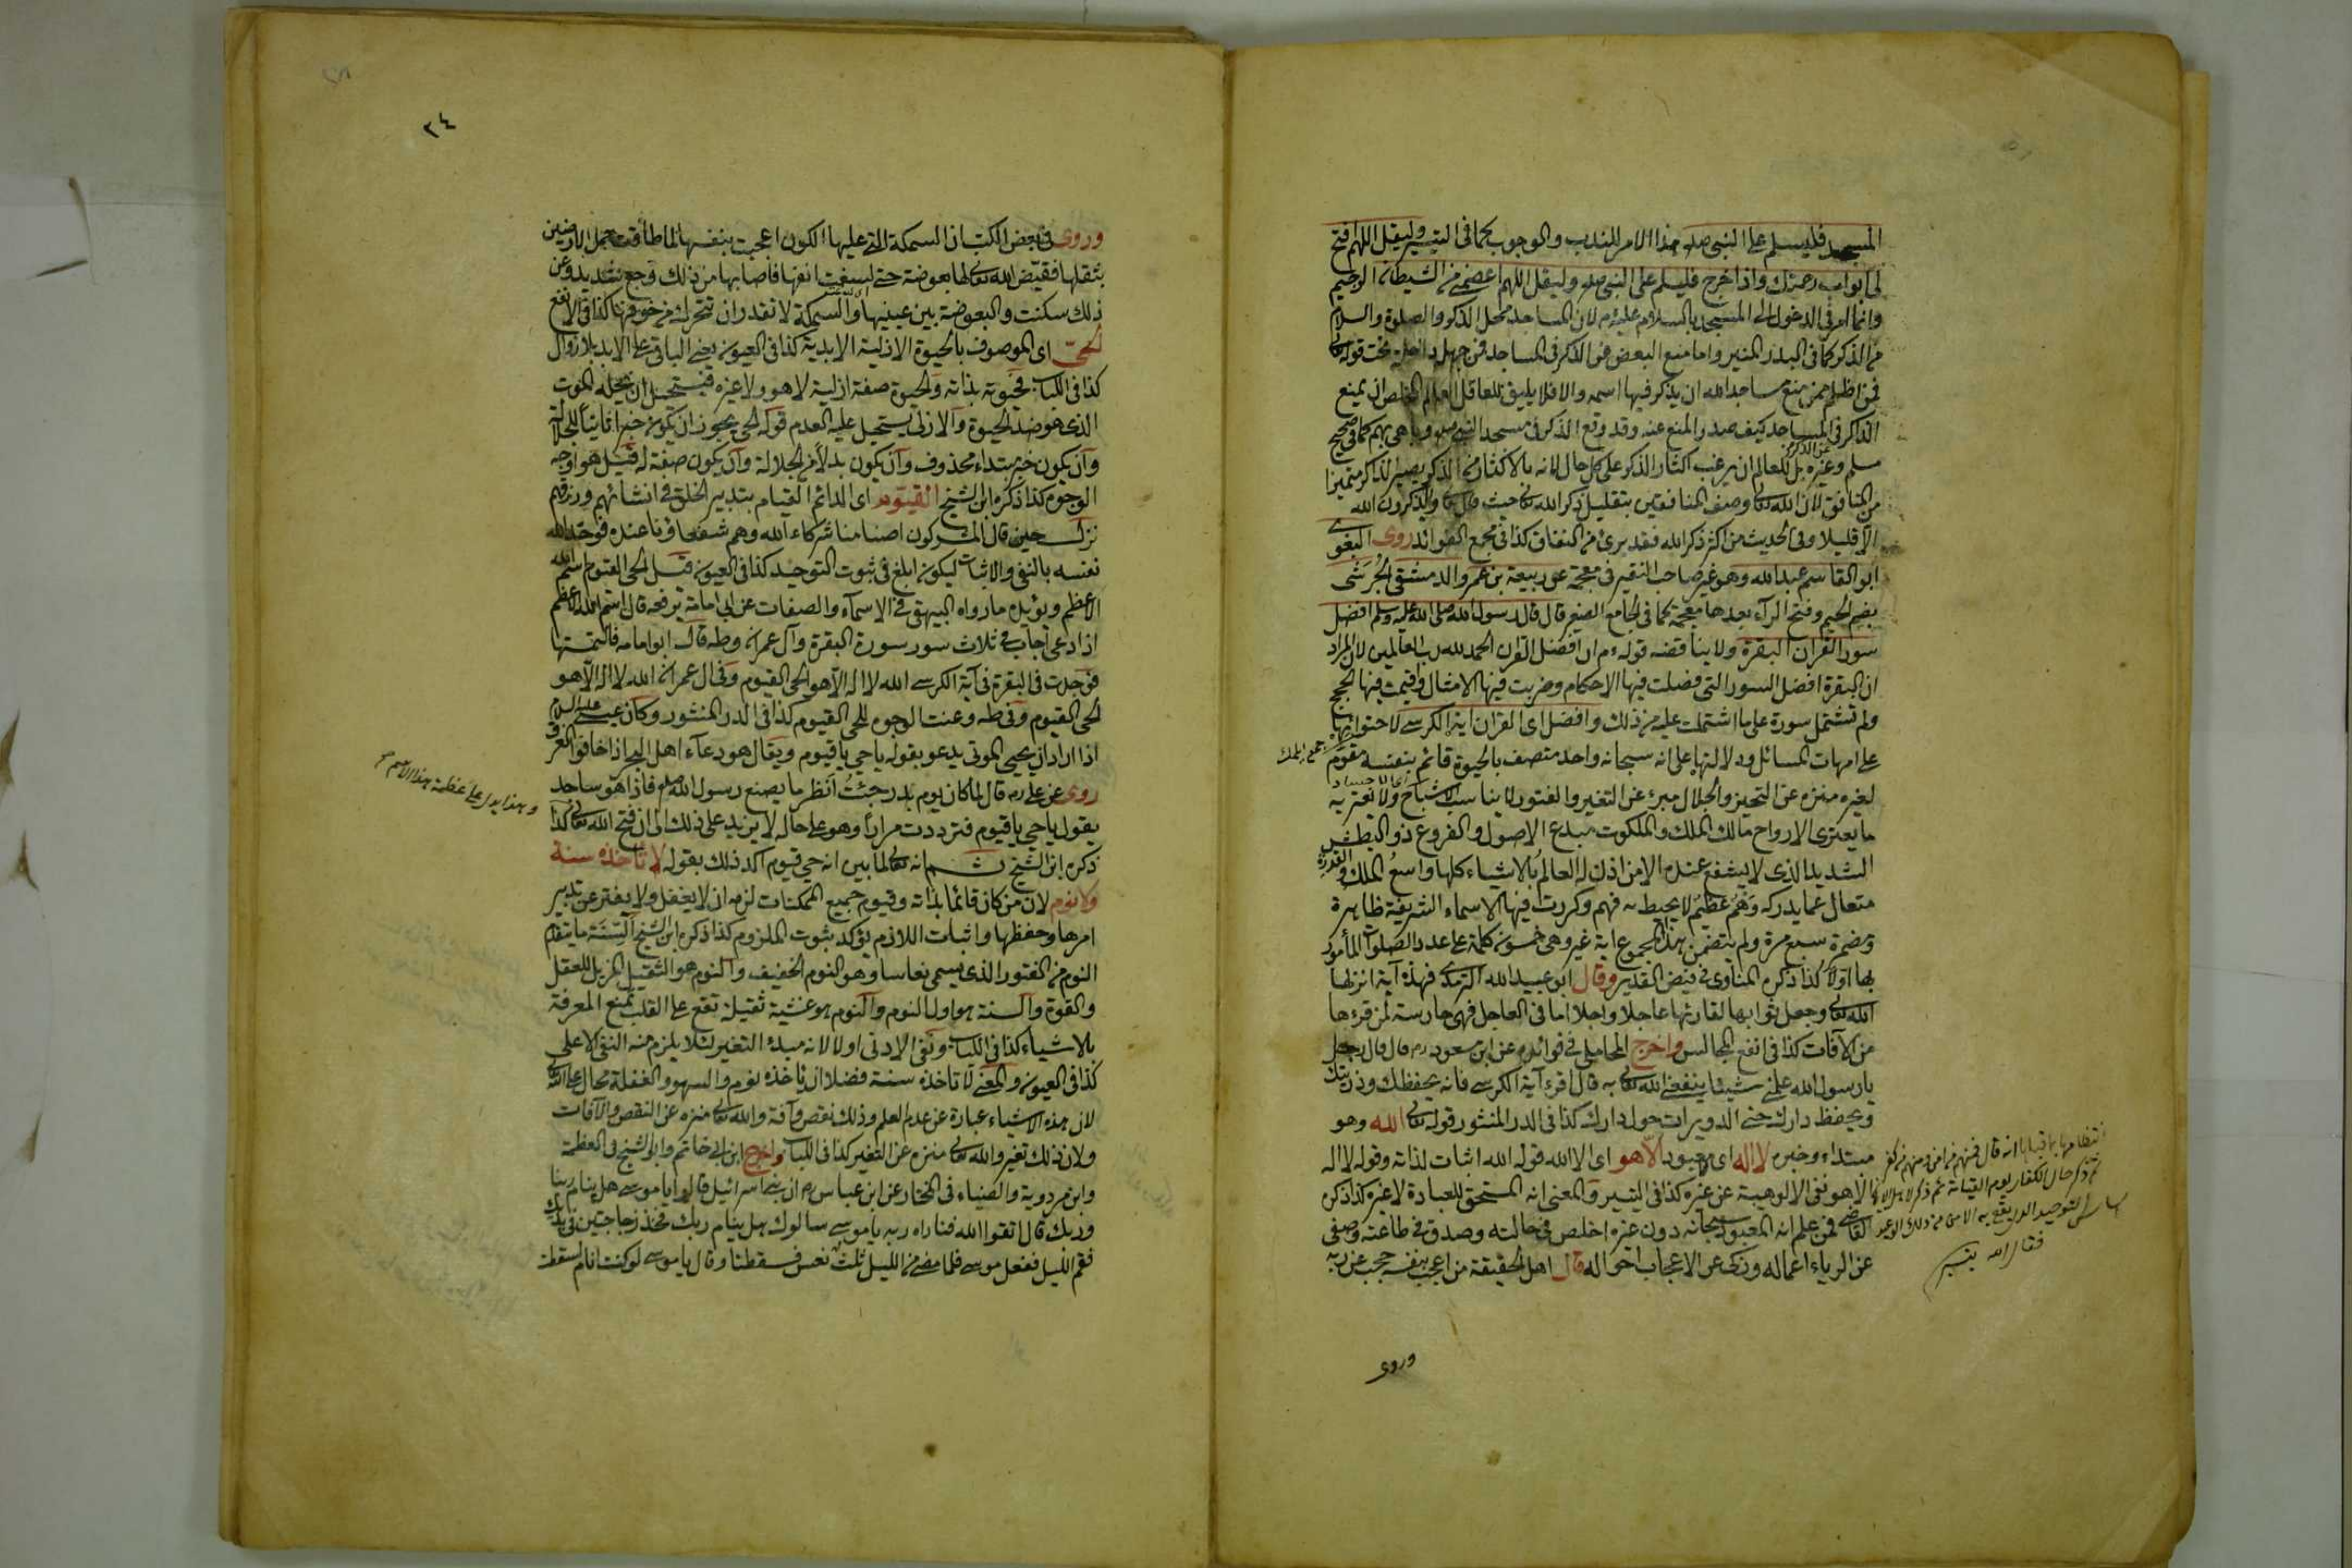 المسجد فليسلم على النبى صلعم هذا الامر للندب والوجوب كما فى التيسير وليقل اللهم افتح
لى ابواب رحمتك واذا خرج فليسلم على النبى صلعم وليقل اللهم اعصمنى من الشيطان الرجيم
وانما امر فى الدخول الى المسجد بالسلام عليه م لان المساجد محل الذكر والصلوة والسلام
من الذكر كما فى البدر المنير واما منع البعض من الذكر فى المساجد فمن جهله داخلة تحت قوله تعالى
فمن اظلم ممن منع مساجد الله ان يذكر فيها اسمه والا فلا يليق للعاقل العالم المخلص ان يمنع
الذاكر فى المساجد كيف صدر المنع عنه وقد وقع الذكر فى مسجد النبى صلعم وباهى بهم كما فى صحيح
عن الذكر
مسلم وغيره بل للعالم ان يرغب اكثار الذكر على كل حال لانه بالاكثار من الذكر يصير الذاكر متميزا
من المنافق لان الله تعالى وصف المنافقين بتقليل ذكر الله تعالى حيث قال تعالى ولا يذكرون الله
الا قليلا وفى الحديث من اكثر ذكر الله فقد برئ من النفاق كذا فى مجمع الفوائد روى البغوى
ابو القاسم عبد الله وهو غير صاحب التفسير فى معجمه عن ربيعة بن عمرو الدمشقى الجرشى
بضم الجيم وفتح الراء بعدها معجمة كما فى الجامع الصغير قال قال رسول الله صلى الله عليه وسلم افضل
سور القران البقرة ولا يناقضه قوله م ان افضل القران الحمد لله رب العالمين لان المراد
ان البقرة افضل السور التى فصلت فيها الاحكام وضربت فيها الامثال واقيمت فيها الحجج
ولم تشتمل سورة على ما اشتملت عليه من ذلك وافضل اى القران اية الكرسى لاحتوائها
على امهات المسائل ودلالتها على انه سبحانه واحد متصف بالحيوة قائم بنفسه مقوم
لغيره منزه عن التحيز والحلول مبرء عن التغير والفتور لا يناسب الاشباح ولا يعتريه
اى الاجساد
ما يعترى الارواح مالك الملك والملكوت مبدع الاصول والفروع ذو البطش
الشديد الذى لا يشفع عنده الا من اذن له العالم بالاشياء كلها واسع الملك والقدرة
متعال عما يدركه وهم عظيم لا يحيط به فهم وكررت فيها الاسماء الشريفة ظاهرة
ومضمرة سبع مرة ولم يتضمن هذا المجموع اية غير وهى خمسون كلمة على عدد الصلوات المأمور
بها اولا كذا ذكره المناوى فى فيض القدير وقال ابو عبيد الله الترمذى فهذه آية انزلها
الله تعالى وجعل ثوابها لقارئها عاجلا واجلا اما فى العاجل فهى حارسة لمن قرءها
من الآفات كذا فى انفع المجالس واخرج المحاملى فى فوائده عن ابن مسعود رم قال قال رجل
يا رسول الله علمنى شيئا ينفعنى الله تعالى به قال اقرء آية الكرسى فانه يحفظك وذريتك
ويحفظ دارك حتى الدويرات حول دارك كذا فى الدر المنثور قوله تعالى الله وهو
مبتداء وخبره لا اله اى لا معبود الا هو اى الا الله قوله الله اثبات لذاته وقوله لا اله
الا هو نفى الالوهية عن غيره كذا فى التيسير والمعنى انه المستحق للعبادة لا غيره كذا ذكره
القاضى فمن علم انه المعبود سبحانه دون غيره اخلص فى حالته وصدق فى طاعته وصفى
عن الرياء اعماله وزكى عن الاعجاب احواله قال اهل الحقيقة من اعجب بنفسه حجب عن ربه
انتظامها بما قبلها انه قال فمنهم من امن ومنهم من كفر
ثم ذكر حال الكفار يوم القيامة ثم ذكر
وروى
٢٤
وروى فى بعض الكتب ان السمكة التى عليها الكون اعجبت بنفسها لما طاقت بحمل الارضين
بثقلها فقيض الله تعالى لها بعوضة حتى لسعت انفها فاصابها من ذلك وجع شديد وعن
ذلك سكنت والبعوضة بين عينيها والسمكة لا تقدر ان تتحرك من خوفها كذا فى الانفع
الحى اى الموصوف بالحيوة الازلية الابدية كذا فى العيون يعنى الباقى على الابد بلا زوال
كذا فى اللباب فحيوته بذاته والحيوة صفة ازلية لا هو ولا غيره فيستحيل ان يحله الموت
الذى هو ضد الحيوة والازلى يستحيل عليه العدم قوله الحى يجوز ان يكون خبرا ثانيا للجلالة
وان يكون خبر مبتداء محذوف وان يكون بدلا من الجلالة وان يكون صفة له قيل هو اوجه
الوجوه كذا ذكره ابن الشيخ القيوم اى الدائم القيام بتدبير الخلق فى انشائهم ورزقهم
نزلت حين قال المشركون اصنامنا شركاء الله وهم شفعاؤنا عنده فوحد الله
نفسه بالنفى والاثبات ليكون ابلغ فى ثبوت التوحيد كذا فى العيون قيل الحى القيوم اسم الله
الاعظم ويؤيده ما رواه البيهقى فى الاسماء والصفات عن ابى امامة يرفعه قال اسم الله الاعظم
اذا دعى اجاب فى ثلاث سور سورة البقرة وآل عمران وطه قال ابو امامه فالتمستها
فوجدت فى البقرة فى آية الكرسى الله لا اله الا هو الحى القيوم وفى ال عمران الله لا اله الا هو
الحى القيوم وفى طه وعنت الوجوه للحى القيوم كذا فى الدر المنثور وكان عيسى عليه السلام
اذا اراد ان يحيى الموتى يدعو بقوله يا حى يا قيوم ويقال هو دعاء اهل البحر اذا خافوا الغرق
وهذا يدل على عظمة هذا الاسم
روى عن على رم قال لما كان يوم بدر جئت انظر ما يصنع رسول الله صلعم فاذا هو ساجد
يقول يا حى يا قيوم فترددت مرارا وهو على حاله لا يزيد على ذلك الى ان فتح الله تعالى كذا
ذكره ابن الشيخ ثم انه تعالى لما بين انه حى قيوم اكد ذلك بقوله لا تأخذه سنة
ولا نوم لان من كان قائما بذاته وقيوم جميع الممكنات لزم ان لا يغفل ولا يفتر عن تدبير
امرها وحفظها واثبات اللازم يؤكد بثبوت الملزوم كذا ذكره ابن الشيخ السنة ما يتقدم
النوم من الفتور الذى يسمى نعاسا وهو النوم الخفيف والنوم هو الثقيل المزيل للعقل
والقوة والسنة هو اول النوم والنوم هو غشية ثقيلة تقع على القلب تمنع المعرفة
بالاشياء كذا فى اللباب ونفى الادنى اولا لانه مبدء التغير لئلا يلزم منه النفى الاعلى
كذا فى العيون والمعنى لا تاخذه سنة فضلا ان تاخذه نوم والسهو والغفلة محال على الله
لان هذه الاشياء عبارة عن عدم العلم وذلك نقص وآفة والله تعالى منزه عن النقص والآفات
ولان ذلك تغير والله تعالى منزه عن التغير كذا فى اللباب واخرج ابن ابى حاتم وابو الشيخ فى العظمة
وابن مردوية والضياء فى المختار عن ابن عباس رم ان بنى اسرائيل قالوا يا موسى هل ينام ربنا
وربك قال اتقوا الله فناداه ربه يا موسى سالوك هل ينام ربك فخذ زجاجتين فى يديك
فقم الليل ففعل موسى فلما مضى من الليل ثلث نعس فسقطتا وقال يا موسى لو كنت انام لسقطت